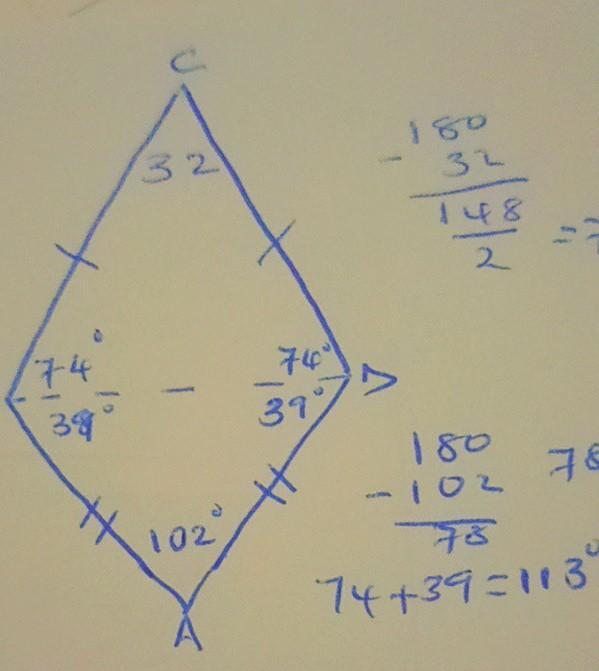 C
32
74°
74°
39°
39°
102°
A
D
180
- 32
148
2
=
180
- 102
78
78
74+39=113°